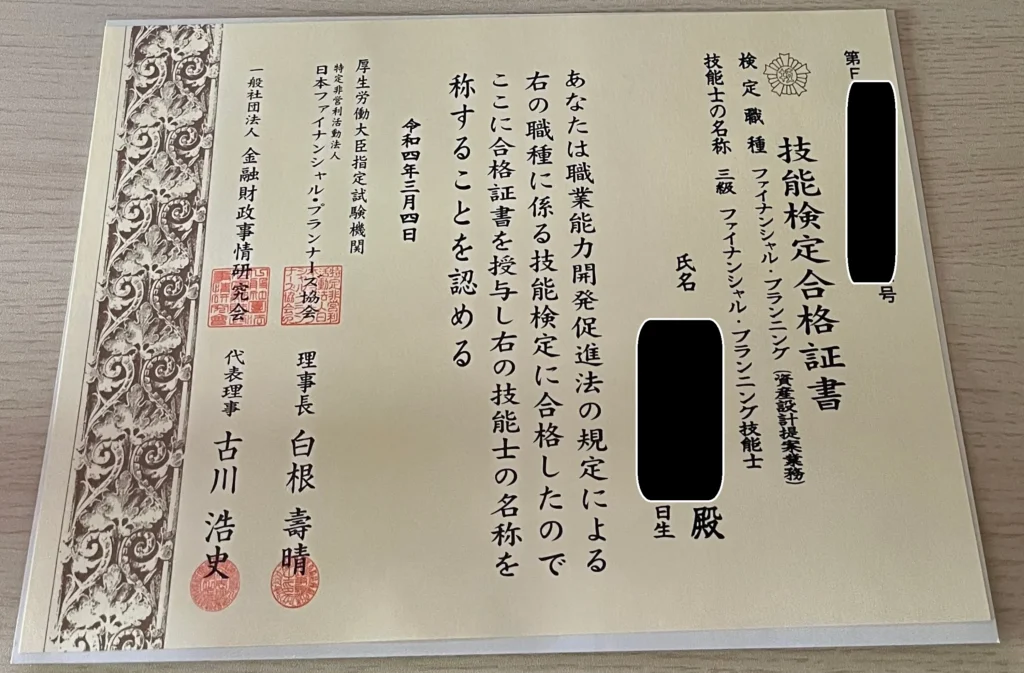 第F 号
技能検定合格証書
検定職種 ファイナンシャル・プランニング(資産設計提案業務)
技能士の名称 三級 ファイナンシャル・プランニング技能士
氏名 殿
日生
あなたは職業能力開発促進法の規定による
右の職種に係る技能検定に合格したので
ここに合格証書を授与し右の技能士の名称を
称することを認める
令和四年三月四日
厚生労働大臣指定試験機関
特定非営利活動法人
日本ファイナンシャル・プランナーズ協会 理事長 白根 壽晴
一般社団法人 金融財政事情研究会 代表理事 古川 浩史